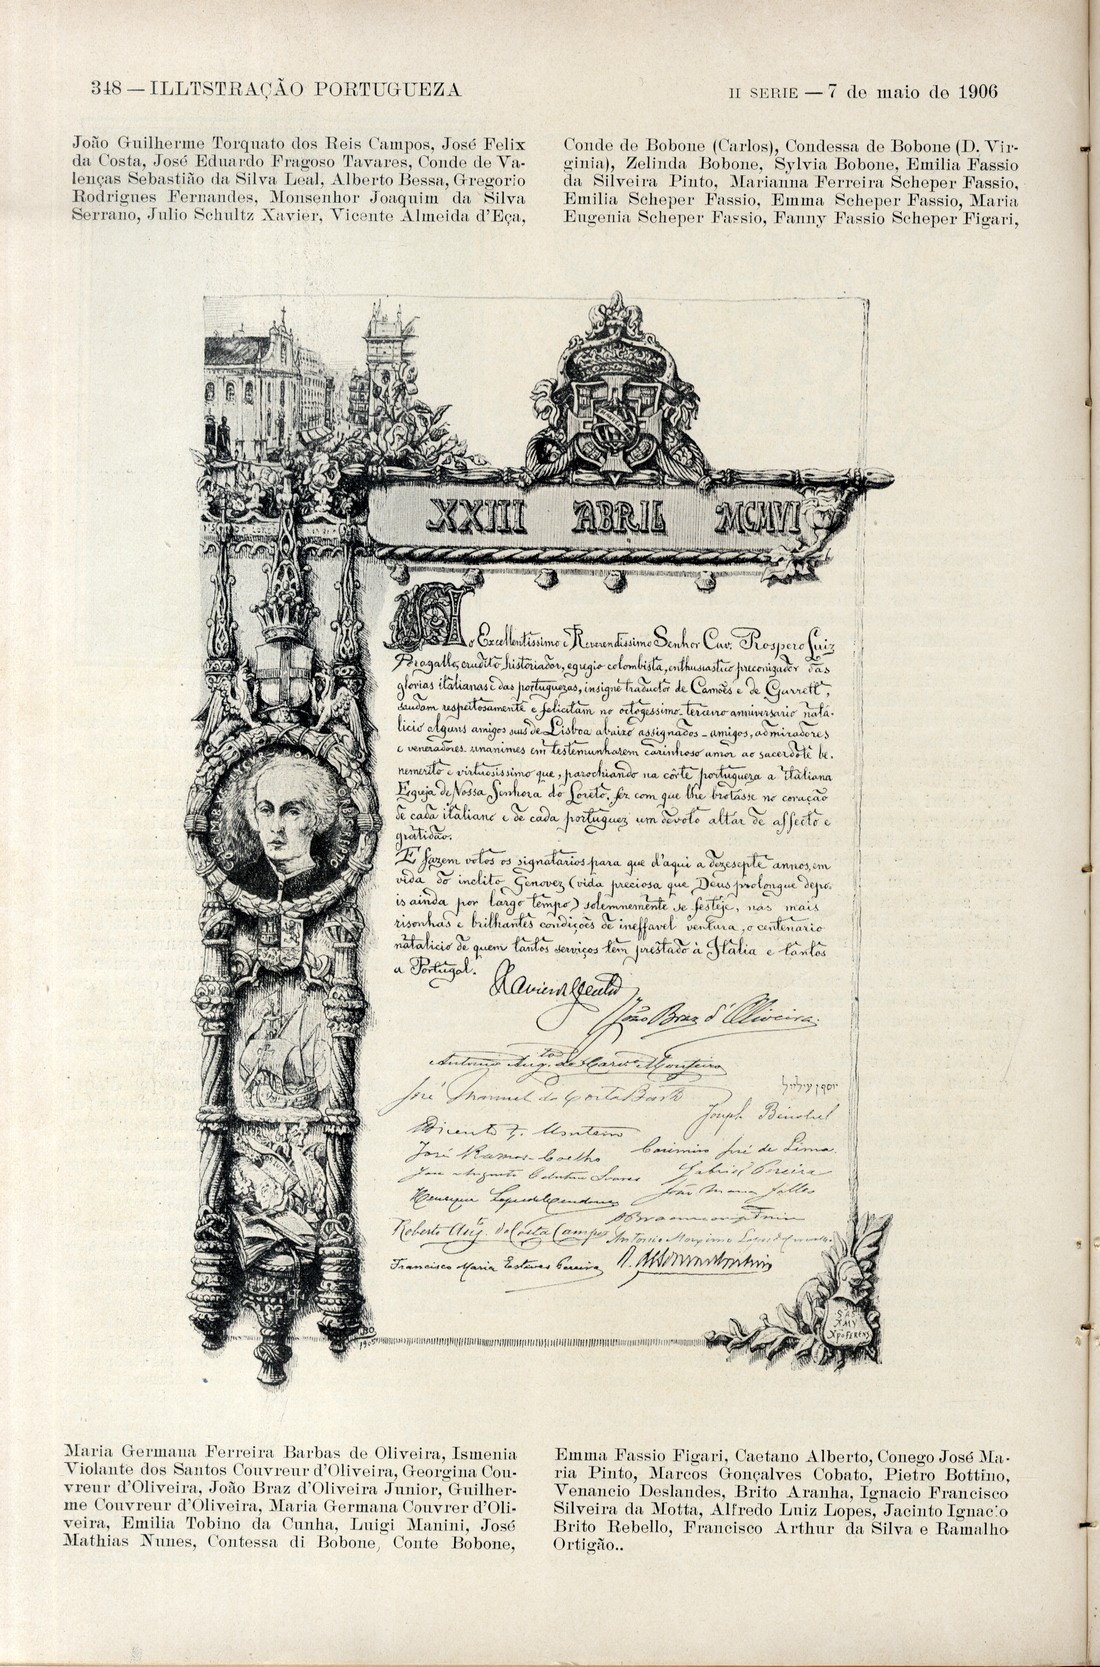 348 — ILLTSTRAÇÃO PORTUGUEZA
II SERIE — 7 de maio de 1906
João Guilherme Torquato dos Reis Campos, José Felix
da Costa, José Eduardo Fragoso Tavares, Conde de Va-
lenças Sebastião da Silva Leal, Alberto Bessa, Gregorio
Rodrigues Fernandes, Monsenhor Joaquim da Silva
Serrano, Julio Schultz Xavier, Vicente Almeida d'Eça,
Conde de Bobone (Carlos), Condessa de Bobone (D. Vir-
ginia), Zelinda Bobone, Sylvia Bobone, Emilia Fassio
da Silveira Pinto, Marianna Ferreira Scheper Fassio,
Emilia Scheper Fassio, Emma Scheper Fassio, Maria
Eugenia Scheper Fassio, Fanny Fassio Scheper Figari,
XXIII ABRIL MCMVI
Ao Excellentissimo e Reverendissimo Senhor Cav. Prospero Luiz
Peragallo, erudito historiador, egregio colombista, enthusiastico preconizador das
glorias italianas e das portuguezas, insigne traductor de Camões e de Garrett,
saudam respeitosamente e felicitam no octogessimo-terceiro anniversario nata-
licio alguns amigos seus de Lisboa abaixo assignados – amigos, admiradores
e veneradores unanimes em testemunharem carinhoso amor ao sacerdote be-
nemerito e virtuosissimo que, parochiando na côrte portugueza a Italiana
Egreja de Nossa Senhora do Loreto, fez com que lhe brotasse no coração
de cada italiano e de cada portuguez um devoto altar de affecto e
gratidão.
E fazem votos os signatarios para que d'aqui a dezesepte annos, em
vida do inclito Genovez (vida preciosa que Deus prolongue depo-
is ainda por largo tempo) solemnemente se festeje, nas mais
risonhas e brilhantes condições de ineffavel ventura, o centenario
natalicio de quem tantos serviços tem prestado à Italia e tantos
a Portugal.
João Braz d'Oliveira
José Manuel da Costa Basto
Joseph Benoliel
José Ramos Coelho
Casimiro José de Lima
Gabriel Pereira
Henrique Lopes de Mendonça
Roberto Aug. da Costa Campos
Francisco Maria Esteves Pereira
1905
Maria Germana Ferreira Barbas de Oliveira, Ismenia
Violante dos Santos Couvreur d'Oliveira, Georgina Cou-
vreur d'Oliveira, João Braz d'Oliveira Junior, Guilher-
me Couvreur d'Oliveira, Maria Germana Couvrer d'Oli-
veira, Emilia Tobino da Cunha, Luigi Manini, José
Mathias Nunes, Contessa di Bobone, Conte Bobone,
Emma Fassio Figari, Caetano Alberto, Conego José Ma-
ria Pinto, Marcos Gonçalves Cobato, Pietro Bottino,
Venancio Deslandes, Brito Aranha, Ignacio Francisco
Silveira da Motta, Alfredo Luiz Lopes, Jacinto Ignacio
Brito Rebello, Francisco Arthur da Silva e Ramalho
Ortigão..